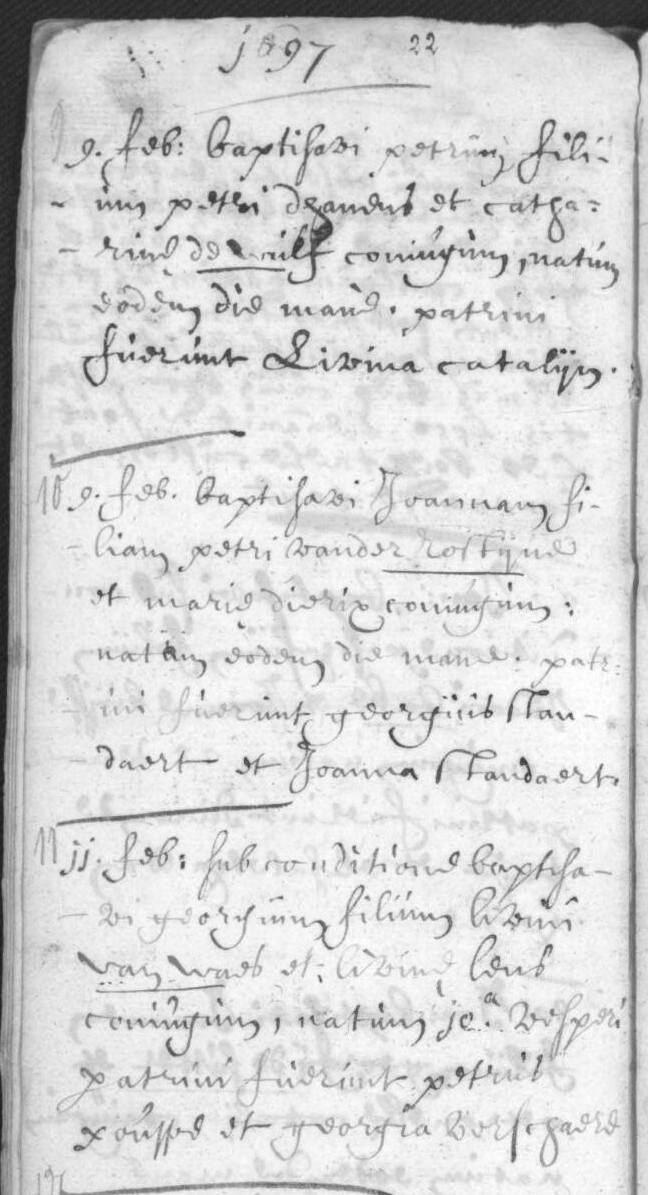 1697 22
9. feb: baptisavi petrum fili-
um petri dhaneus et catha=
rine de wulf coniugum, natum
eodem die mane. patrini
fuerunt Livina catalijn.
10 9. feb. baptisavi Joannam fi-
liam petri vander rostijne
et marie dierix coniugum:
natam eodem die mane. patr:
ini fuerunt georgius stan-
daert et Joanna standaert
11 11. feb: sub conditione baptisa-
vi georgium filium livini
van waes et livine lens
coniugum, natum 10.a vesperi
patrini fuerunt petrus
pousse et georgia verschaere